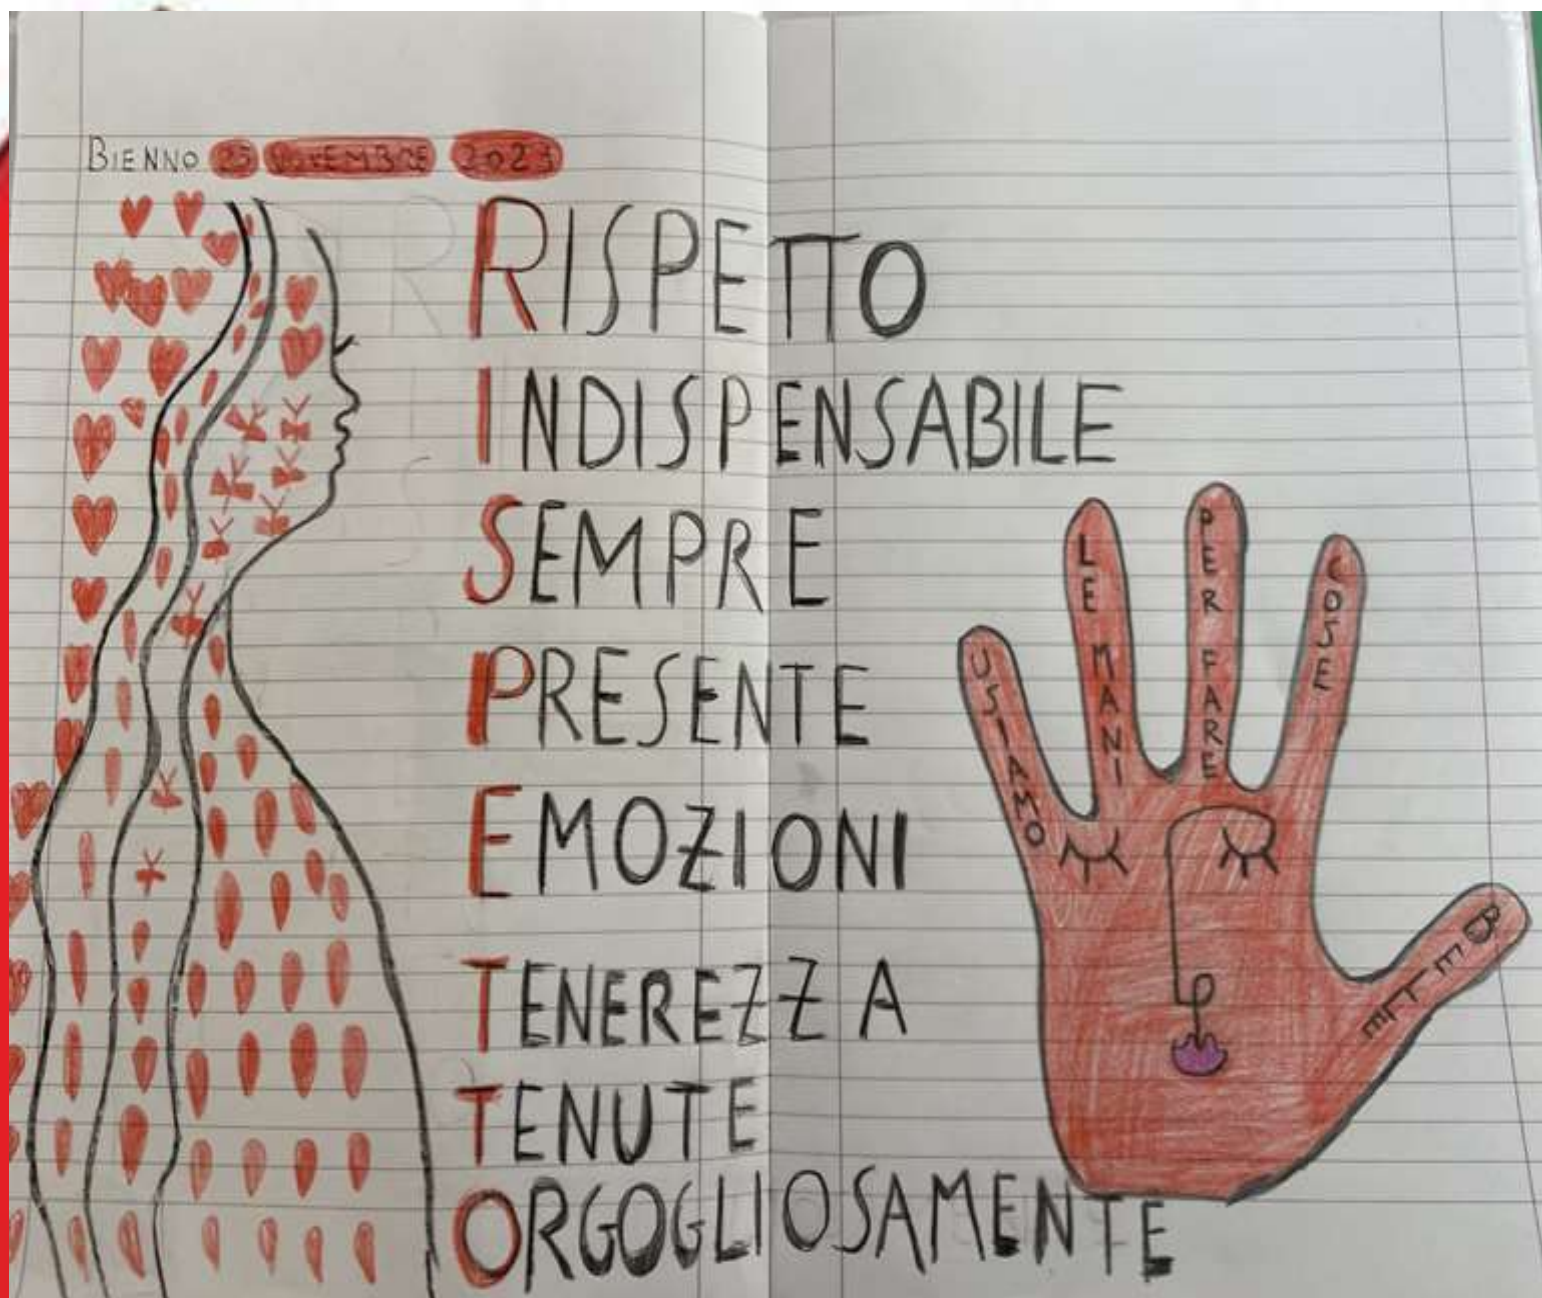 BIENNO 25 NOVEMBRE 2023
RISPETTO
INDISPENSABILE
SEMPRE
PRESENTE
EMOZIONI
TENEREZZA
TENUTE
ORGOGLIOSAMENTE
USIAMO
LE MANI
PER FARE
COSE
BELLE